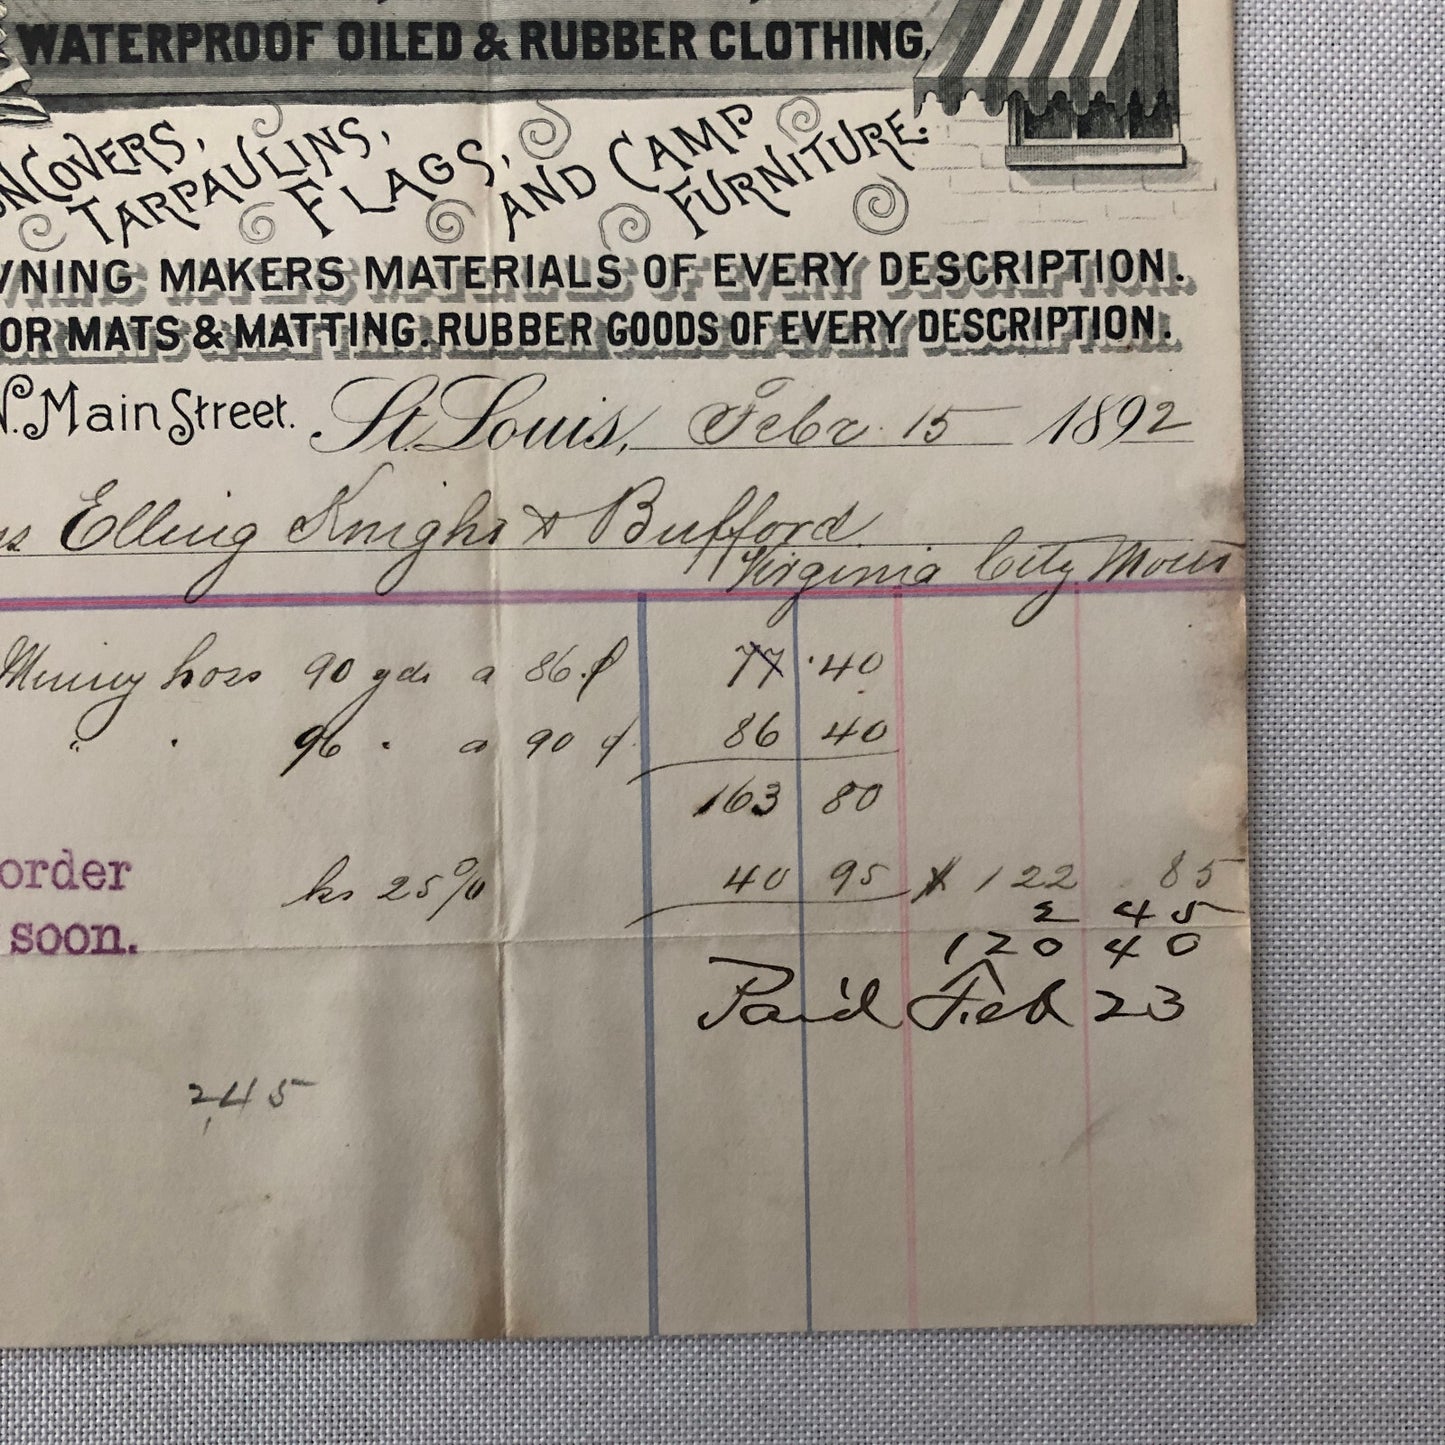 WATERPROOF OILED & RUBBER CLOTHING,
NCOVERS, TARPAULINS, FLAGS, AND CAMP FURNITURE.
NING MAKERS MATERIALS OF EVERY DESCRIPTION.
OR MATS & MATTING. RUBBER GOODS OF EVERY DESCRIPTION.
N. Main Street. St. Louis, Febr. 15 1892
Elling Knight & Bufford
Virginia City
Mining hose 90 yds a 86 ¢ 77 40
" " 96 " a 90 ¢ 86 40
163 80
order ls 25% 40 95 $ 122 85
2 45
soon. 120 40
Paid Feb 23
2 45